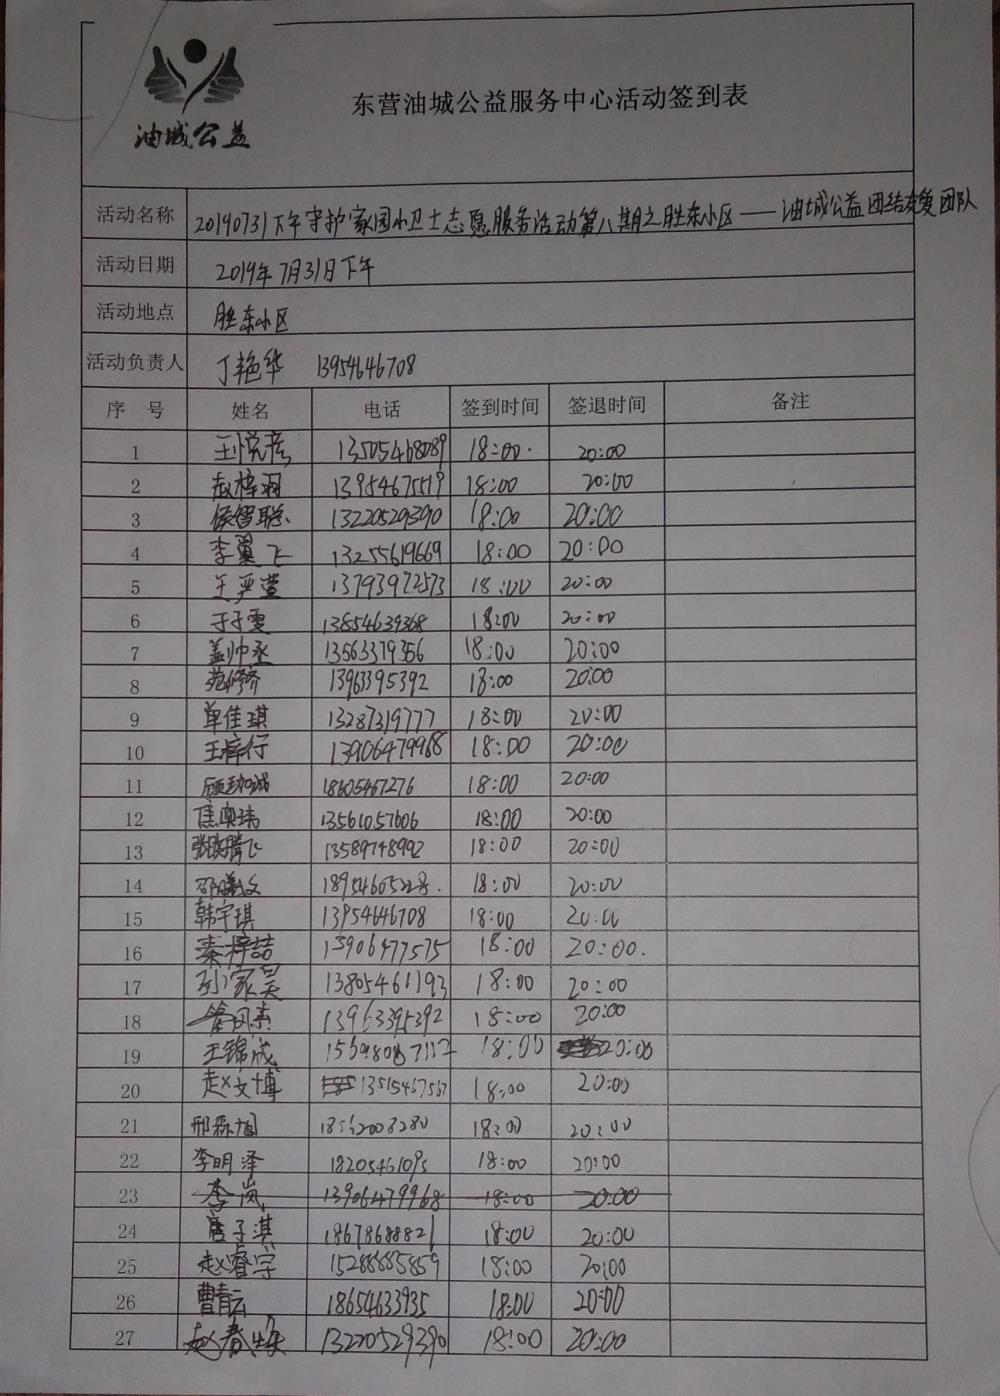 油城公益
东营油城公益服务中心活动签到表
活动名称 20190731下午守护家园小卫士志愿服务活动第八期之胜东小区——油城公益团结友爱团队
活动日期 2019年7月31日下午
活动地点 胜东小区
活动负责人 丁艳华 13954646708
序 号 姓名 电话 签到时间 签退时间 备注
1 王悦彦 13505468089 18:00 20:00
2 赵梓羽 13954675519 18:00 20:00
3 侯智聪 13220529390 18:00 20:00
4 李翼飞 13255619669 18:00 20:00
5 王严萱 13793972573 18:00 20:00
6 于子雯 13854639368 18:00 20:00
7 盖帅丞 13563379356 18:00 20:00
8 苑修齐 13963395392 18:00 20:00
9 单佳琪 13287319777 18:00 20:00
10 王梓行 13906479968 18:00 20:00
11 18605467276 18:00 20:00
12 焦奥玮 13561057606 18:00 20:00
13 张晓腾飞 13589748992 18:00 20:00
14 邵曦文 18954605228. 18:00 20:00
15 韩宇琪 13954646708 18:00 20:00
16 秦梓喆 13906477575 18:00 20:00.
17 孙家昊 13805461193 18:00 20:00
18 13963395392 18:00 20:00
19 王锦成 18:00 20:00
20 赵文博 13515467567 18:00 20:00
21 邢森旭 18562008280 18:00 20:00
22 李明泽 18205461095 18:00 20:00
23 李岚 13906479968 18:00 20:00
24 唐子淇 18678688821 18:00 20:00
25 赵睿宇 15288885859 18:00 20:00
26 曹青云 18654633935 18:00 20:00
27 赵春焕 13220529390 18:00 20:00